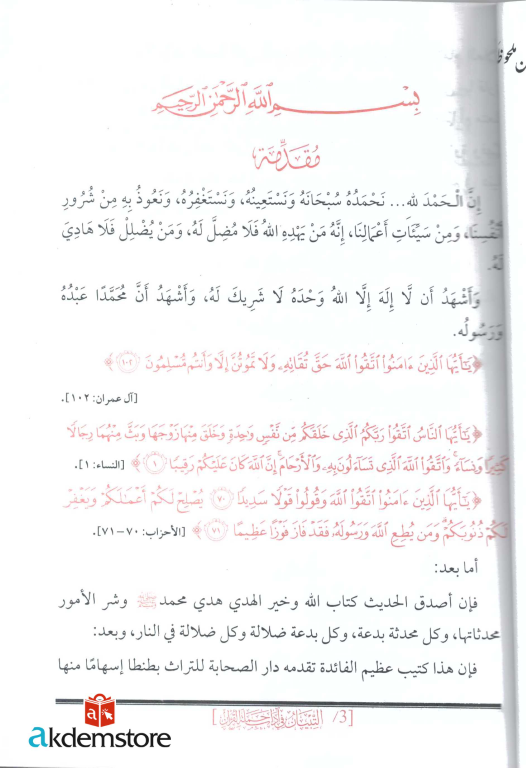 ن ملحوظ
بِسْمِ اللَّهِ الرَّحْمَٰنِ الرَّحِيمِ
مُقَدِّمَةٌ
إِنَّ الْحَمْدَ لله... نَحْمَدُهُ سُبْحَانَهُ وَنَسْتَعِينُهُ، وَنَسْتَغْفِرُهُ، وَنَعُوذُ بِهِ مِنْ شُرُورِ
أَنْفُسِنَا، وَمِنْ سَيِّئَاتِ أَعْمَالِنَا، إِنَّهُ مَنْ يَهْدِهِ اللهُ فَلَا مُضِلَّ لَهُ، وَمَنْ يُضْلِلْ فَلَا هَادِيَ
لَهُ.
وَأَشْهَدُ أَن لَّا إِلَهَ إِلَّا اللهُ وَحْدَهُ لَا شَرِيكَ لَهُ، وَأَشْهَدُ أَنَّ مُحَمَّدًا عَبْدُهُ
وَرَسُولُه.
﴿يَٰٓأَيُّهَا ٱلَّذِينَ ءَامَنُوا۟ ٱتَّقُوا۟ ٱللَّهَ حَقَّ تُقَاتِهِۦ وَلَا تَمُوتُنَّ إِلَّا وَأَنتُم مُّسْلِمُونَ ١٠٢﴾
[آل عمران: ١٠٢].
﴿يَٰٓأَيُّهَا ٱلنَّاسُ ٱتَّقُوا۟ رَبَّكُمُ ٱلَّذِى خَلَقَكُم مِّن نَّفْسٍ وَٰحِدَةٍ وَخَلَقَ مِنْهَا زَوْجَهَا وَبَثَّ مِنْهُمَا رِجَالًا
كَثِيرًا وَنِسَآءً ۚ وَٱتَّقُوا۟ ٱللَّهَ ٱلَّذِى تَسَآءَلُونَ بِهِۦ وَٱلْأَرْحَامَ ۚ إِنَّ ٱللَّهَ كَانَ عَلَيْكُمْ رَقِيبًا ١﴾ [النساء: ١].
﴿يَٰٓأَيُّهَا ٱلَّذِينَ ءَامَنُوا۟ ٱتَّقُوا۟ ٱللَّهَ وَقُولُوا۟ قَوْلًا سَدِيدًا ٧٠ يُصْلِحْ لَكُمْ أَعْمَٰلَكُمْ وَيَغْفِرْ
لَكُمْ ذُنُوبَكُمْ ۗ وَمَن يُطِعِ ٱللَّهَ وَرَسُولَهُۥ فَقَدْ فَازَ فَوْزًا عَظِيمًا ٧١﴾ [الأحزاب: ٧٠-٧١].
أما بعد:
فإن أصدق الحديث كتاب الله وخير الهدي هدي محمد ﷺ وشر الأمور
محدثاتها، وكل محدثة بدعة، وكل بدعة ضلالة وكل ضلالة في النار، وبعد:
فإن هذا كتيب عظيم الفائدة تقدمه دار الصحابة للتراث بطنطا إسهامًا منها
[3/ التبيان في آداب حملة القرآن]
akdemstore